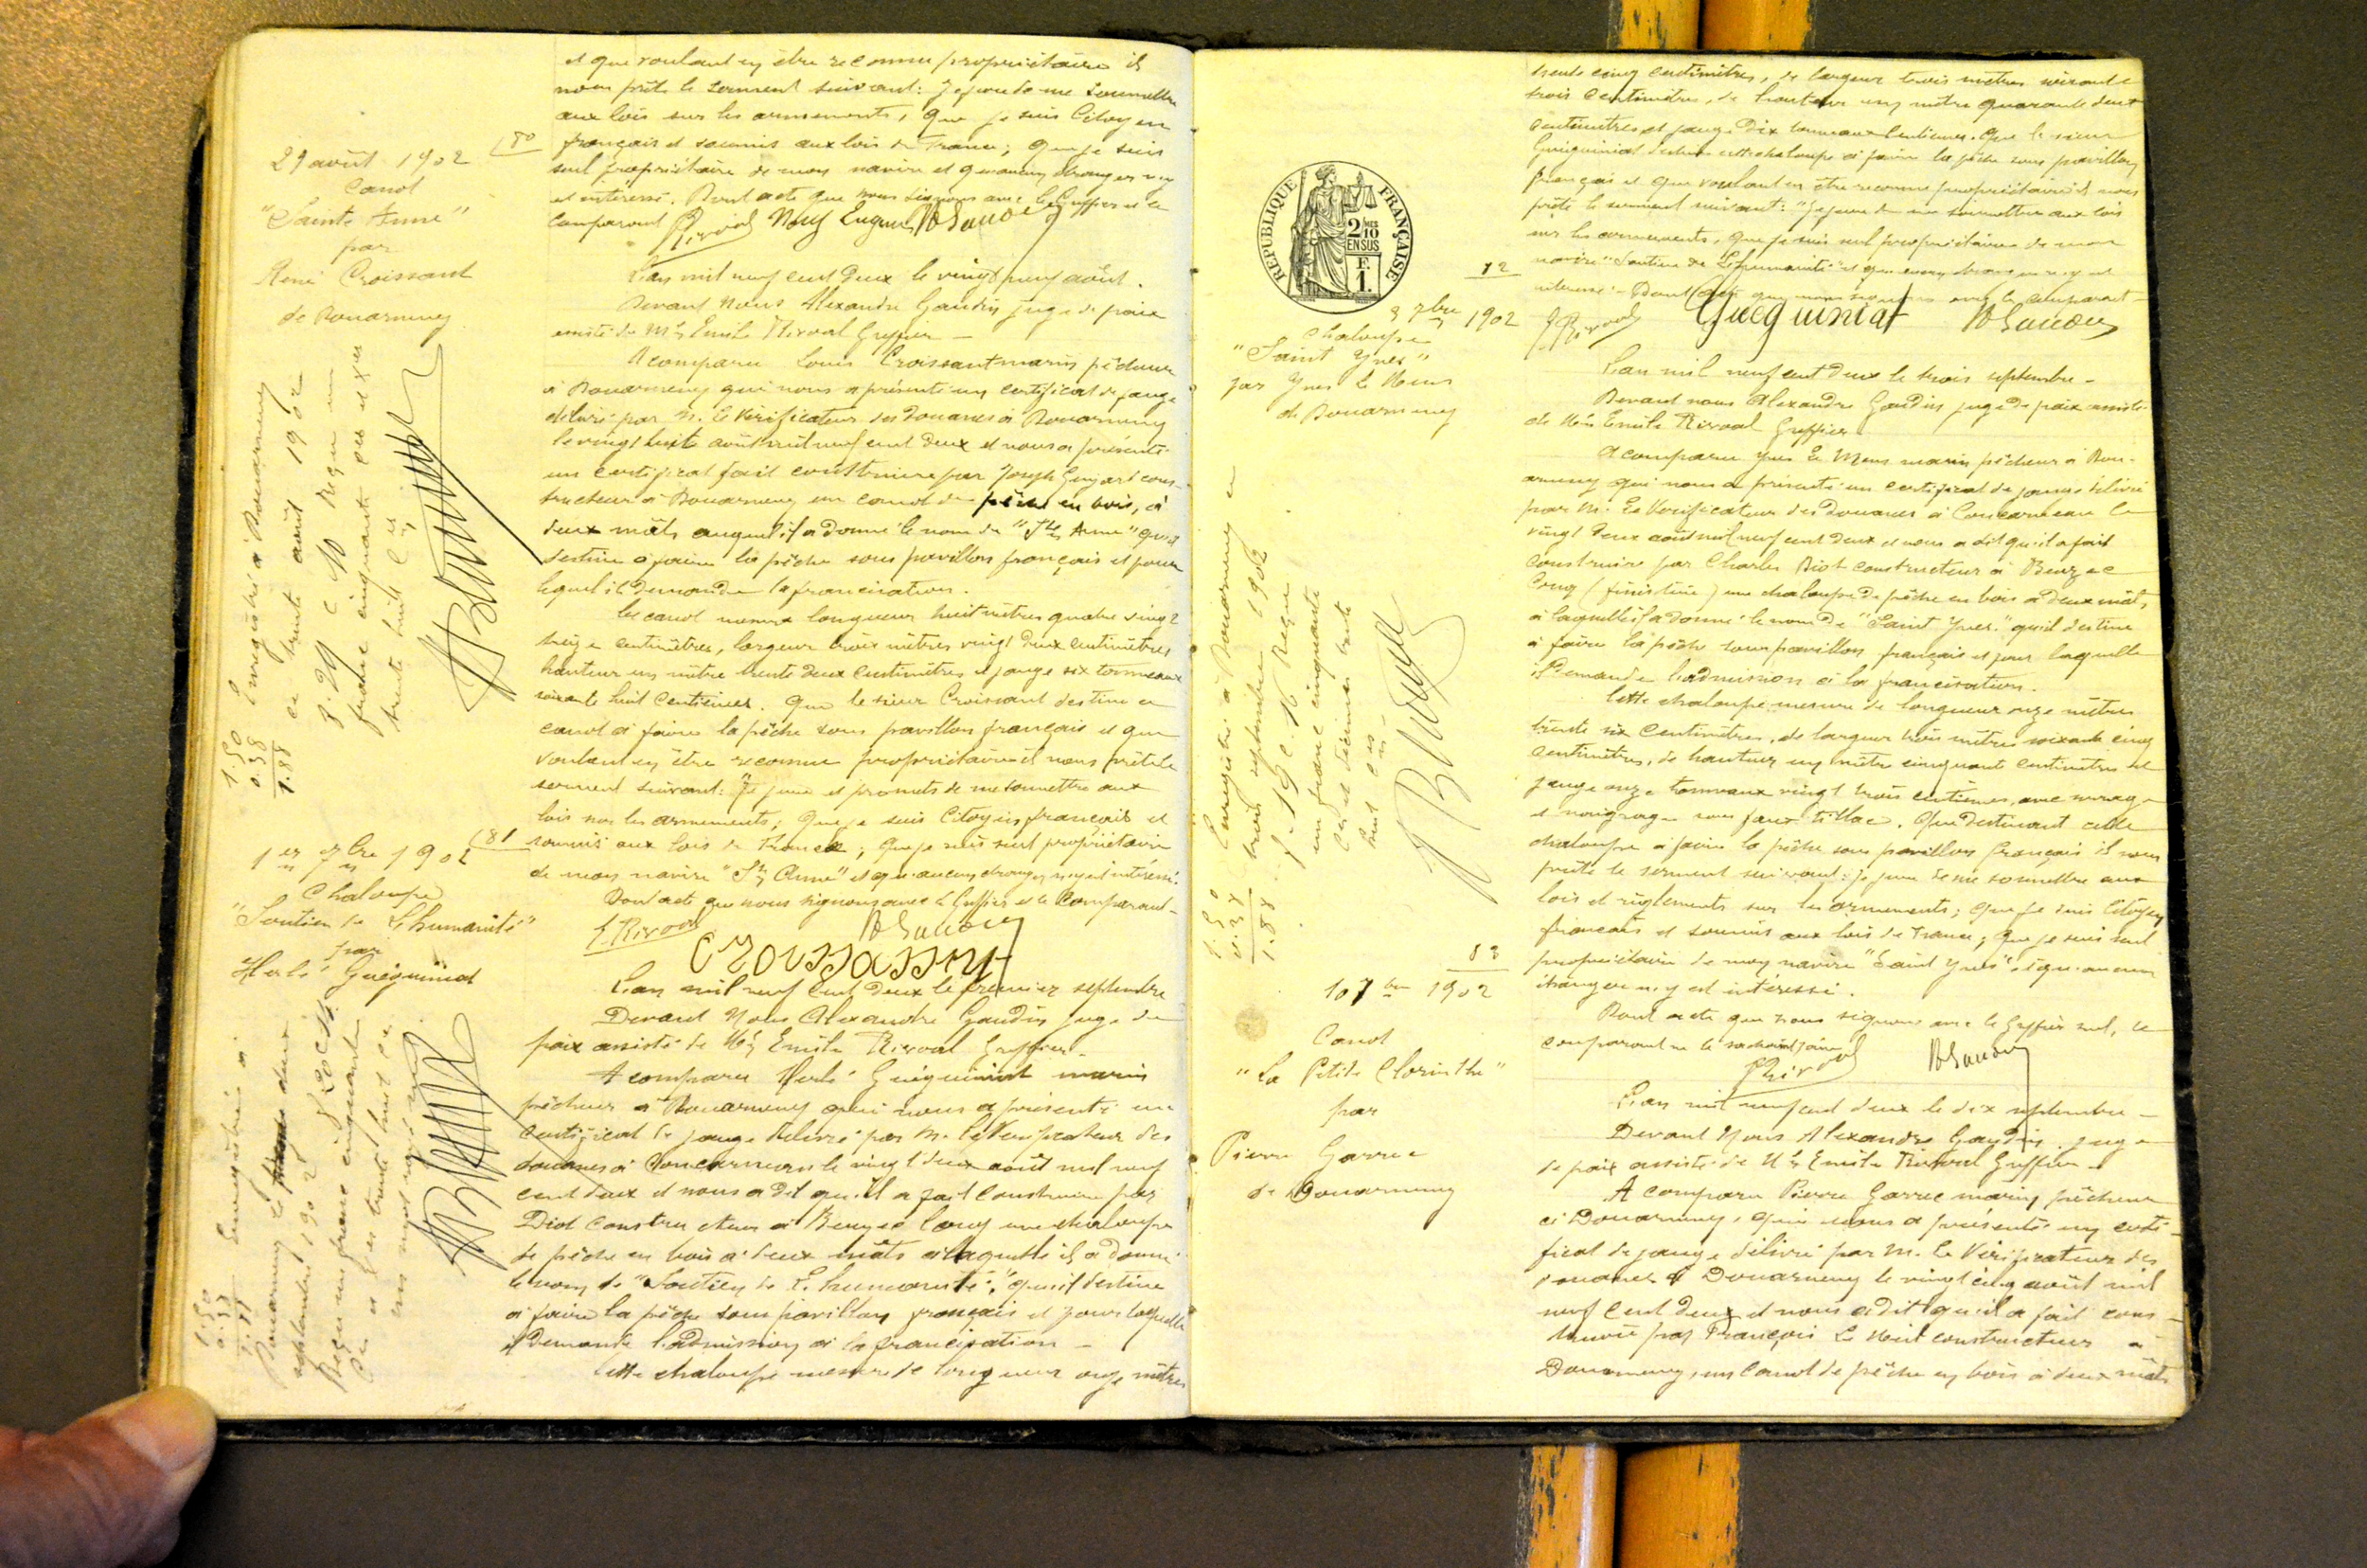 et que voulant en être reconnu propriétaire il
nous prête le serment suivant: Je jure de me soumettre
aux lois sur les armements, que je suis Citoyen
français et soumis aux lois de France; que je suis
seul propriétaire de mon navire et qu'aucun étranger n'y
est intéressé. Dont acte que nous signons avec le Greffier et le
Comparant
29 août 1902
Canot
"Sainte Anne"
par
René Croissant
de Douarnenez
L'an mil neuf cent deux le vingt neuf août.
Devant Nous Alexandre Gaudin juge de paix
assisté de Me Emile Rivoal Greffier —
A comparu Louis Croissant marin pêcheur
à Douarnenez qui nous a présenté un certificat de jauge
délivré par M. le Vérificateur des Douanes à Douarnenez
le vingt huit août mil neuf cent deux et nous a présenté
un certificat fait construire par Joseph cons-
tructeur à Douarnenez un canot de pêche en bois, à
deux mâts auquel il a donné le nom de "Ste Anne" qu'il
destine à faire la pêche sous pavillon français et pour
lequel il demande la francisation.
Ce canot mesure longueur huit mètres quatre vingt
treize centimètres, largeur trois mètres vingt deux centimètres
hauteur un mètre trente deux centimètres et jauge six tonneaux
soixante huit centièmes. Que le sieur Croissant destine ce
canot à faire la pêche sous pavillon français et que
voulant en être reconnu propriétaire il nous prête le
serment suivant: "Je jure et promets de me soumettre aux
lois sur les armements; que je suis Citoyen français et
soumis aux lois de France; que je suis seul propriétaire
de mon navire "Ste Anne" et qu'aucun étranger n'y est intéressé.
Dont acte que nous signons avec le Greffier et le Comparant —
Enregistré à Douarnenez
ce trente août 1902
f. 29 c. 10 Reçu un
franc cinquante ces et dixes
trente huit ces
1.50
0.38
1.88
181
1er 7bre 1902
Chaloupe
"Soutien de L'humanité"
par
Hervé Guéguiniat
L'an mil neuf cent deux le premier septembre
Devant Nous Alexandre Gaudin juge de
paix assisté de Me Emile Rivoal Greffier —
A comparu Hervé Guéguiniat marin
pêcheur à Douarnenez qui nous a présenté un
Certificat de jauge délivré par M. le Vérificateur des
douanes à Concarneau le vingt deux août mil neuf
cent deux et nous a dit qu'il a fait construire par
Diot constructeur à Beuzec Conq une chaloupe
de pêche en bois à deux mâts à laquelle il a donné
le nom de "Soutien de L'humanité", qu'il destine
à faire la pêche sous pavillon français et pour laquelle
il demande l'admission à la francisation —
Cette chaloupe mesure de longueur onze mètres
Enregistré à
Douarnenez le deux
septembre 1902
Reçu un franc cinquante
ces trente huit ces
1.50
0.38
1.88
trente cinq centimètres, de largeur trois mètres soixante
trois centimètres, de hauteur un mètre quarante deux
centimètres et jauge Dix tonneaux centièmes. Que le sieur
Guéguiniat destine cette chaloupe à faire la pêche sous pavillon
français et que voulant en être reconnu propriétaire il nous
prête le serment suivant: "Je jure de me soumettre aux lois
sur les armements, que je suis seul propriétaire de mon
navire "Soutien de L'humanité" et qu'aucun étranger n'y est
intéressé. — Dont acte que nous signons avec le comparant —
Gueguiniat
RÉPUBLIQUE FRANÇAISE
2/10 MES
EN SUS
F.
1.
3 7bre 1902
Chaloupe
"Saint Yves"
par Yves Le Mens
de Douarnenez
L'an mil neuf cent deux le trois septembre —
Devant nous Alexandre Gaudin juge de paix assisté
de Me Emile Rivoal Greffier
A comparu Yves Le Mens marin pêcheur à Dou-
arnenez qui nous a présenté un certificat de jauge délivré
par M. Le Vérificateur des Douanes à Concarneau le
vingt deux août mil neuf cent deux et nous a dit qu'il a fait
construire par Charles Diot constructeur à Beuzec
Conq (finistère) une chaloupe de pêche en bois à deux mâts,
à laquelle il a donné le nom de "Saint Yves" qu'il destine
à faire la pêche sous pavillon français et pour laquelle
il demande l'admission à la francisation.
Cette chaloupe mesure de longueur onze mètres
trente six centimètres, de largeur trois mètres soixante cinq
centimètres, de hauteur un mètre cinquante centimètres et
jauge onze tonneaux vingt trois centièmes, avec
et sous faux tillac. Que destinant cette
chaloupe à faire la pêche sous pavillon français il nous
prête le serment suivant: je jure de me soumettre aux
lois et règlements sur les armements; que je suis Citoyen
français et soumis aux lois de France; que je suis seul
propriétaire de mon navire "Saint Yves" et qu'aucun
étranger n'y est intéressé.
Dont acte que nous signons avec le greffier seul, le
comparant ne le sachant faire
Enregistré à Douarnenez ce
trois septembre 1902
f. 19 c. 16 Reçu
un franc cinquante
ces et décimes trente
huit ces
1.50
0.38
1.88
10 7bre 1902
Canot
"La Petite Clorinthe"
par
Pierre Garrec
de Douarnenez
L'an mil neuf cent deux le dix septembre —
Devant Nous Alexandre Gaudin juge
de paix assisté de Me Emile Rivoal Greffier —
A comparu Pierre Garrec marin pêcheur
à Douarnenez, qui nous a présenté un certi-
ficat de jauge délivré par M. le Vérificateur des
Douanes à Douarnenez le vingt cinq août mil
neuf cent deux et nous a dit qu'il a fait cons-
truire par François Le constructeur à
Douarnenez, un canot de pêche en bois à deux mâts